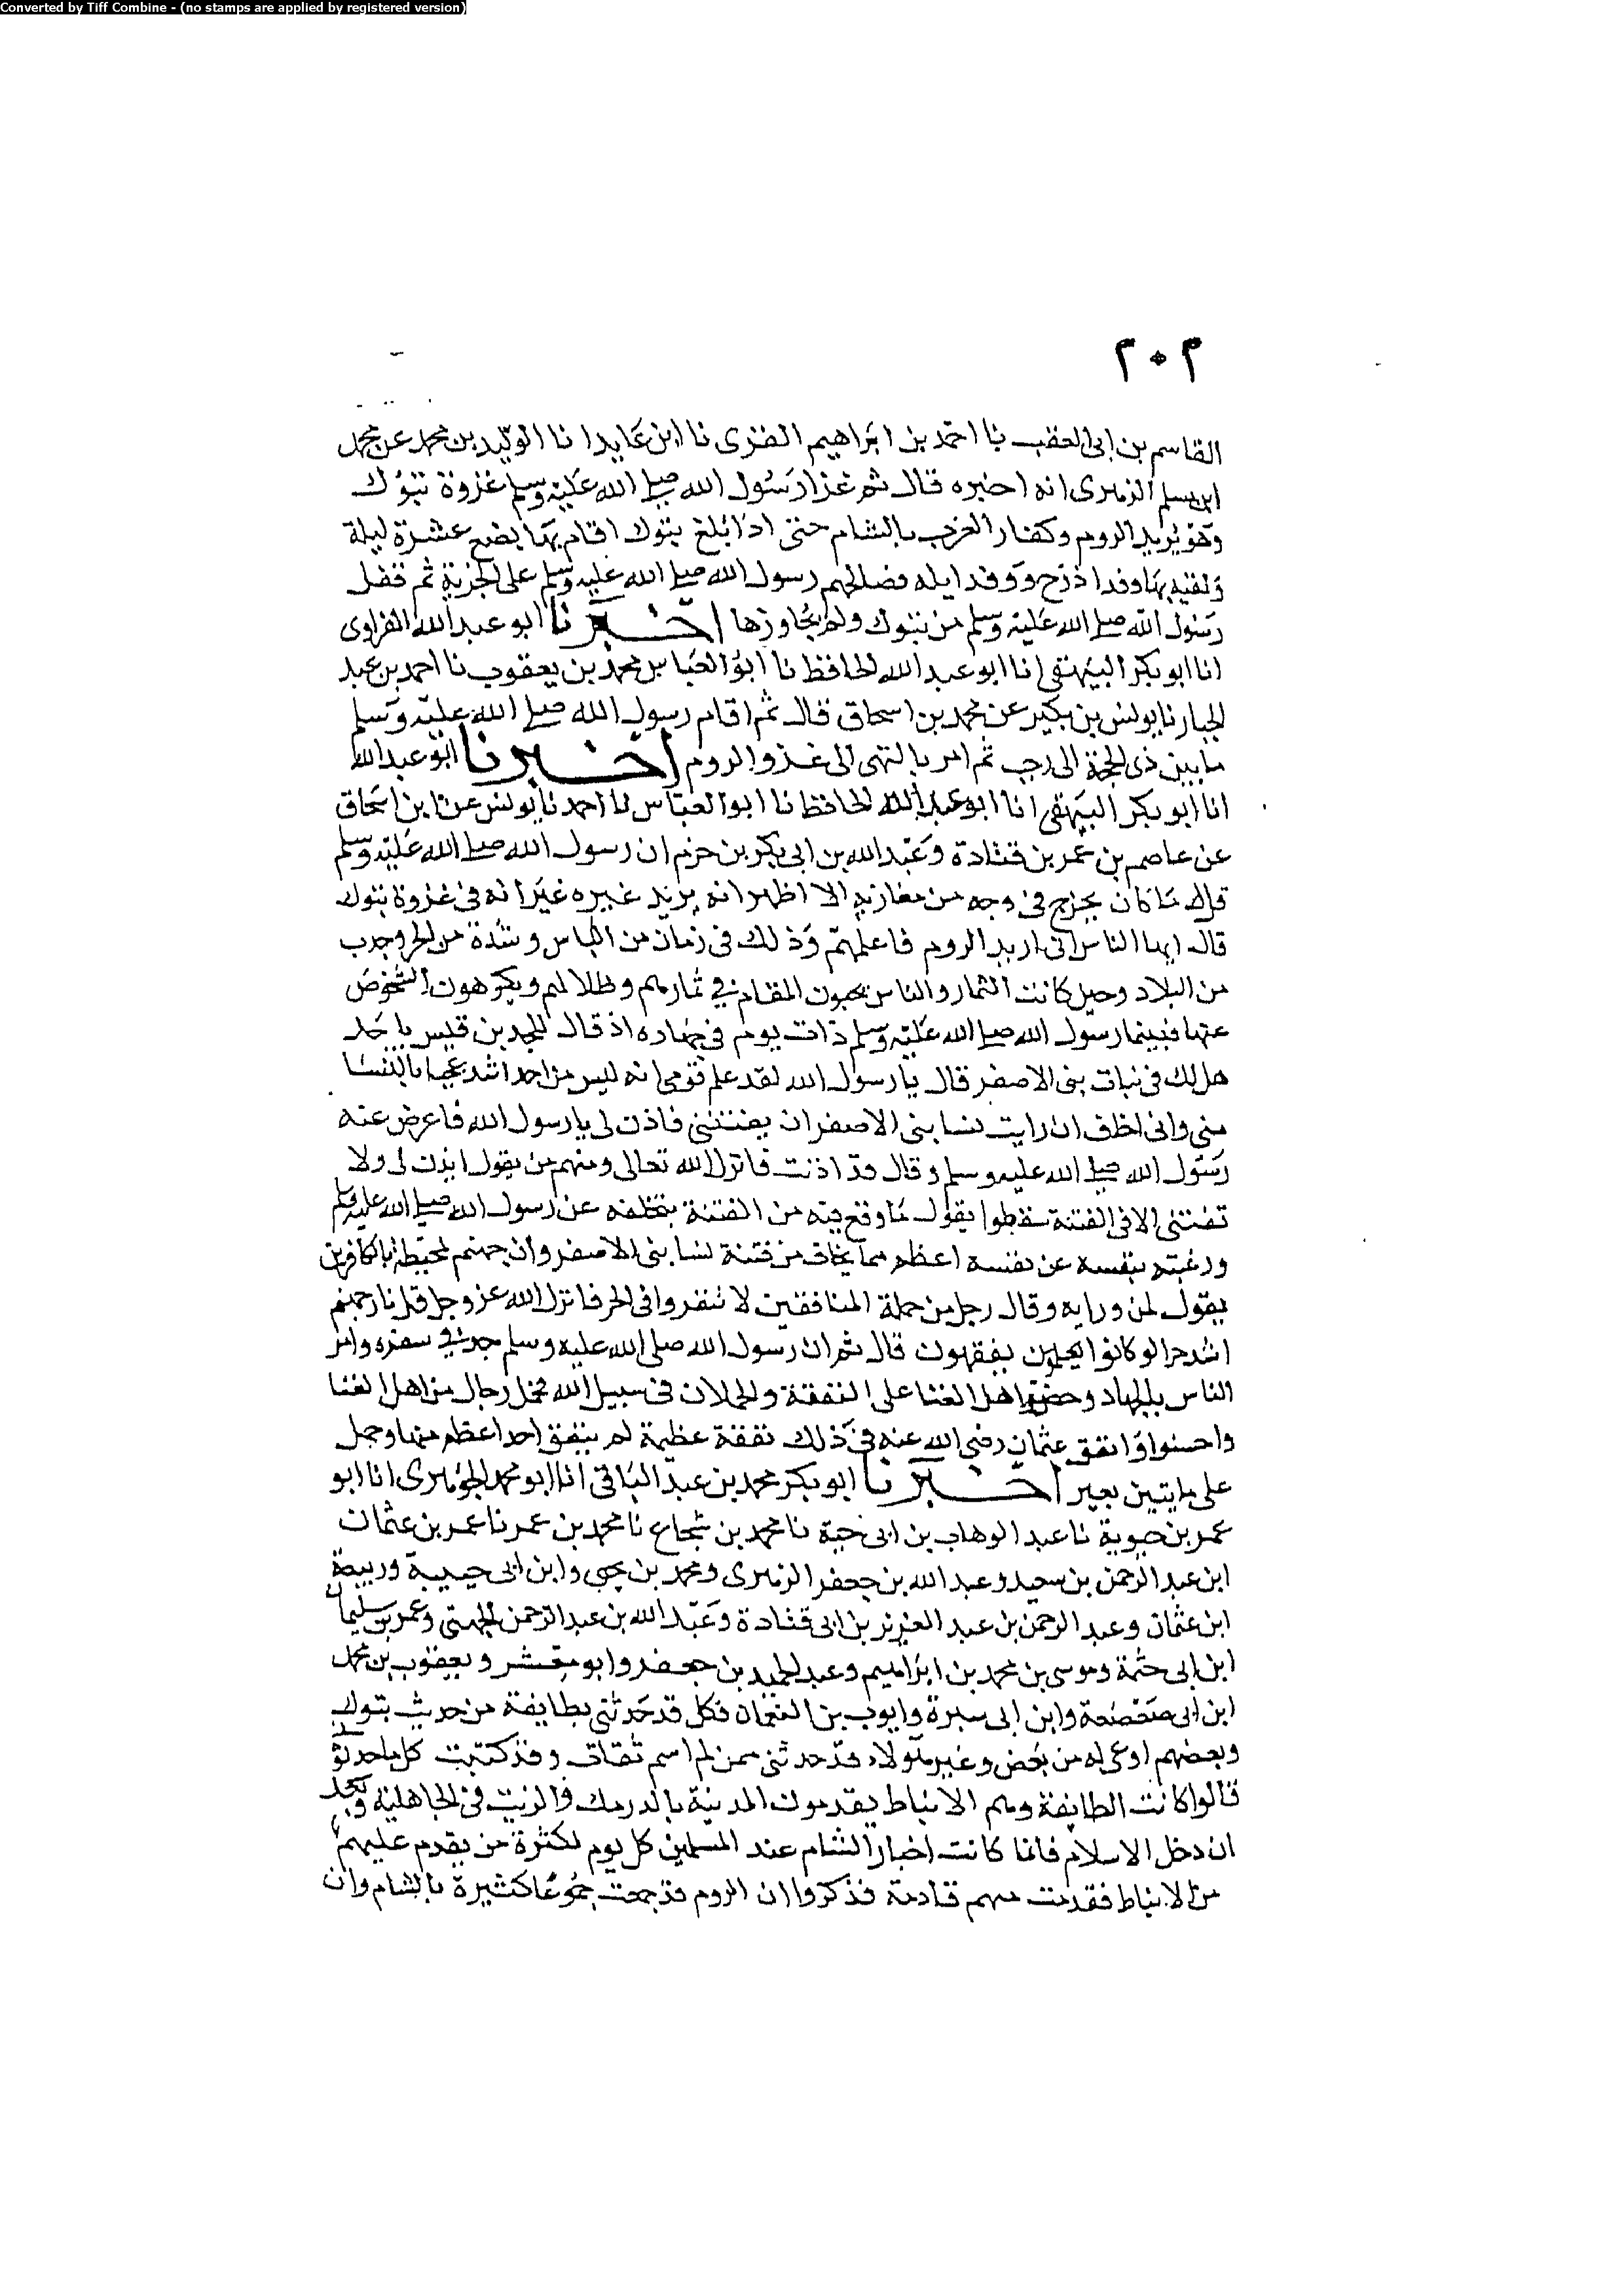 Converted by Tiff Combine - (no stamps are applied by registered version)
٢٠٣
القاسم بن ابى العقب نا احمد بن ابراهيم القرى نا ابن عايد انا الوليد بن محمد عن محمد
ابن مسلم الزهرى انه اخبره قال ثم غزا رسول الله صلى الله عليه وسلم غزوة تبوك
وهو يريد الروم وكفار العرب بالشام حتى اذا بلغ تبوك اقام بها بضع عشرة ليلة
ولقيه بها وفد اذرح ووفد ايله فصالحهم رسول الله صلى الله عليه وسلم على الجزية ثم قفل
رسول الله صلى الله عليه وسلم من تبوك ولم يجاوزها اخبرنا ابو عبد الله الفراوى
انا ابو بكر البيهقى انا ابو عبد الله الحافظ نا ابو العباس محمد بن يعقوب نا احمد بن عبد
الجبار نا يونس بن بكير عن محمد بن اسحاق قال ثم اقام رسول الله صلى الله عليه وسلم
ما بين ذى الحجة الى رجب ثم امر بالتهى الى غزو الروم اخبرنا ابو عبد الله
انا ابو بكر البيهقى انا ابو عبد الله الحافظ نا ابو العباس نا احمد نا يونس عن ابن اسحاق
عن عاصم بن عمر بن قتادة وعبد الله بن ابى بكر بن حزم ان رسول الله صلى الله عليه وسلم
قل ما كان يخرج فى وجه من مغازيه الا اظهر انه يريد غيره غير انه فى غزوة تبوك
قال ايها الناس انى اريد الروم فاعلمهم وذلك فى زمان من الباس وشدة من الحر وجدب
من البلاد وحين كانت الثمار والناس يحبون المقام في ثمارهم وظلالهم ويكرهون الشخوص
عنها فبينما رسول الله صلى الله عليه وسلم ذات يوم فى جهاده اذ قال للجد بن قيس يا جد
هل لك فى بنات بنى الاصفر قال يا رسول الله لقد علم قومى انه ليس من احد اشد عجبا بالنسا
منى وانى اخاف ان رايت نسا بنى الاصفر ان يفتننى فاذن لى يا رسول الله فاعرض عنه
رسول الله صلى الله عليه وسلم وقال قد اذنت فانزل الله تعالى ومنهم من يقول ايذن لى ولا
تفتنى الا فى الفتنة سقطوا يقول ما وقع فيه من الفتنة بتخلفه عن رسول الله صلى الله عليه وسلم
ورغبته بنفسه عن نفسه اعظم مما يخاف من فتنة نسا بنى الاصفر وان جهنم لمحيطة بالكافرين
يقول لمن ورايه وقال رجل من جملة المنافقين لا تنفروا فى الحر فانزل الله عز وجل قل نار جهنم
اشد حرا لو كانوا يفقهون قال ثم ان رسول الله صلى الله عليه وسلم جد في سفره وامر
الناس بالجهاد وحض اهل الغنا على النفقة والحملان فى سبيل الله فحمل رجال من اهل الغنا
واحسنوا وانفق عثمان رضى الله عنه فى ذلك نفقة عظيمة لم ينفق احد اعظم منها وحمل
على مايتين بعير اخبرنا ابو بكر محمد بن عبد الباقى انا ابو محمد الجوهرى انا ابو
عمر بن حيوية نا عبد الوهاب بن ابى حية نا محمد بن شجاع نا محمد بن عمر نا عمر بن عثمان
ابن عبد الرحمن بن سعيد وعبد الله بن جعفر الزهرى ومحمد بن يحيى وابن ابى حبيبة وربيعة
ابن عثمان وعبد الرحمن بن عبد العزيز بن ابى قتادة وعبد الله بن عبد الرحمن الجمحى وعمر بن سليمان
ابن ابى حثمة وموسى بن محمد بن ابراهيم وعبد الحميد بن جعفر وابو معشر ويعقوب بن محمد
ابن ابى صعصعة وابن ابى سبرة وايوب بن النعمان فكل قد حدثنى بطايفة من حديث تبوك
وبعضهم اوعى له من بعض وغير هولاء قد حدثنى ممن لم اسم ثقات وقد كتبت كل ما حدثونى
قالوا كانت الطايفة وهم الانباط يقدمون المدينة بالدرمك والزيت فى الجاهلية وبعد
ان دخل الاسلام فانما كانت اخبار الشام عند المسلمين كل يوم لكثرة من يقدم عليهم
من الانباط فقدمت منهم قادمة فذكروا ان الروم قد جمعت جموعا كثيرة بالشام وان